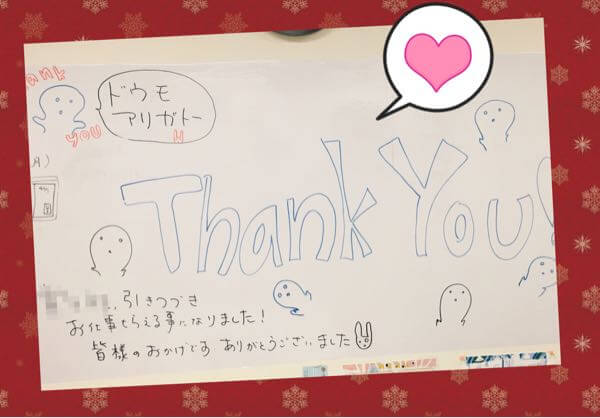 ank
you
ドウモ
アリガトー
Thank You!
引きつづき
お仕事もらえる事になりました!
皆様のおかげです ありがとうございました